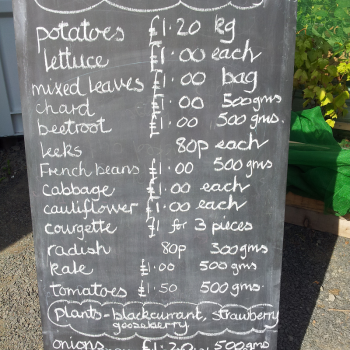 potatoes £1.20 kg
lettuce £1.00 each
mixed leaves £1.00 bag
chard £1.00 500gms
beetroot £1.00 500gms.
leeks 80p each
French beans £1.00 500gms
cabbage £1.00 each
cauliflower £1.00 each
courgette £1 for 3 pieces
radish 80p 300gms
kale £1.00 500gms
tomatoes £1.50 500gms
plants - blackcurrant, strawberry
gooseberry
onions £1.20 500gms